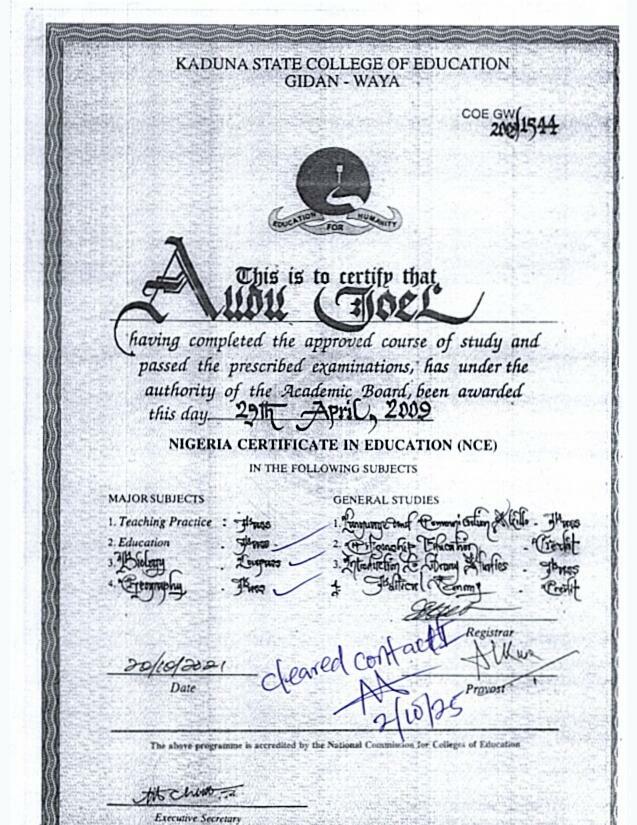 KADUNA STATE COLLEGE OF EDUCATION
GIDAN - WAYA
COE GW
2009/1544
EDUCATION FOR HUMANITY
This is to certify that
Audu Joel
having completed the approved course of study and
passed the prescribed examinations, has under the
authority of the Academic Board, been awarded
this day 29th April, 2009
NIGERIA CERTIFICATE IN EDUCATION (NCE)
IN THE FOLLOWING SUBJECTS
MAJOR SUBJECTS
1. Teaching Practice : Pass
2. Education . Pass
3. Biology . Lowpass
4. Geography . Pass
GENERAL STUDIES
1. Language and Communication Skills - Pass
2. Citizenship Education - Credit
3. Introduction to Library Studies - Pass
4. Political Economy - Credit
Registrar
20/10/2021
Date
Provost
cleared contact II
2/10/25
The above programme is accredited by the National Commission for Colleges of Education
Executive Secretary